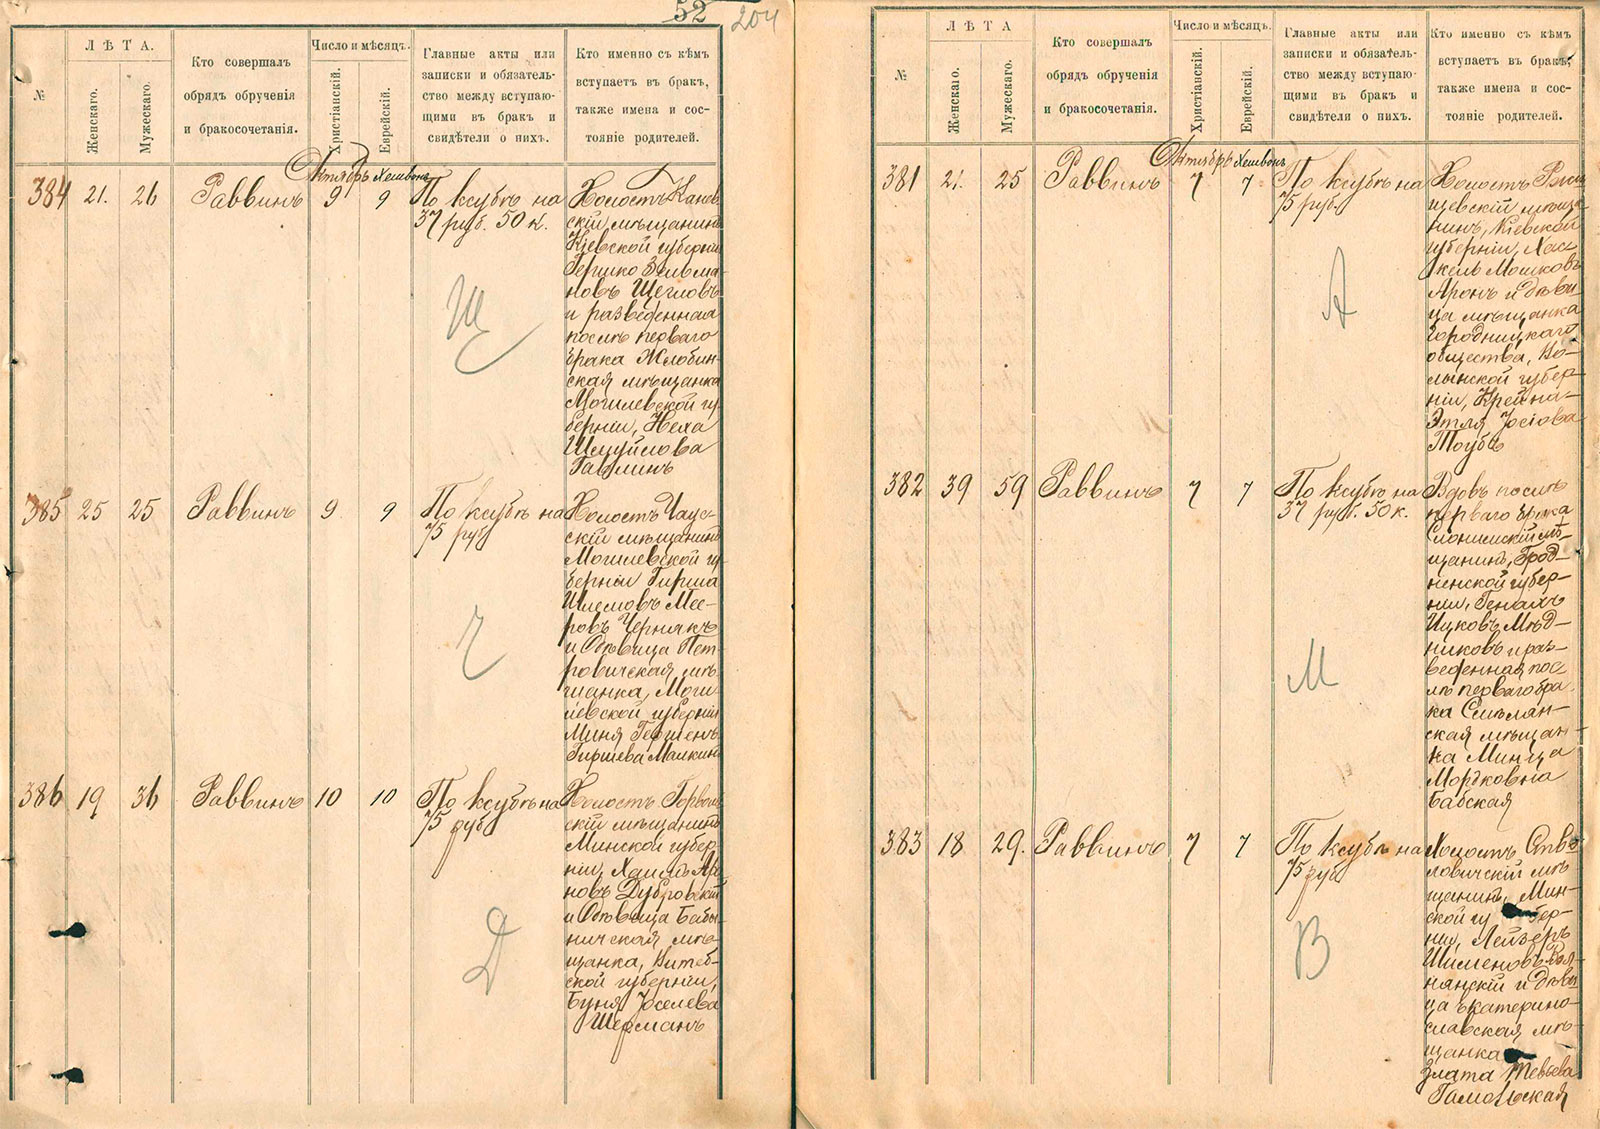 52 204
№
ЛѢТА.
Женскаго.
Мужескаго.
Кто совершалъ
обрядъ обрученія
и бракосочетанія.
Число и мѣсяцъ.
Христіанскій.
Еврейскій.
Главные акты или
записки и обязатель-
ство между вступаю-
щими въ бракъ и
свидѣтели о нихъ.
Кто именно съ кѣмъ
вступаетъ въ бракъ,
также имена и сос-
тояніе родителей.
Октябрь Хешвонъ
384 21. 26 Раввинъ 9 9
По ксубѣ на
37 руб. 50 к.
Щ
Холостъ Канев-
скій мѣщанинъ
Кіевской губерніи
Гершко Зельма-
новъ Щегловъ
и разведенная
послѣ перваго
брака Жлобин-
ская мѣщанка
Могилевской гу-
берніи, Неха
Шмуйлова
Гавлинъ
385 25 25 Раввинъ 9 9
По ксубѣ на
75 руб
Ч
Холостъ Чаус-
скій мѣщанинъ
Могилевской гу-
берніи Гирша
Шлемовъ Мее-
ровъ Чернякъ
и дѣвица Пет-
ровичская мѣ-
щанка, Моги-
левской губерніи
Миня Гершенъ
Гиршева Малкинъ
386 19 36 Раввинъ 10 10
По ксубѣ на
75 руб
Д
Холостъ Горволь-
скій мѣщанинъ
Минской губер-
ніи, Хаимъ Аро-
новъ Дубровскій
и дѣвица Бабы-
ничская мѣ-
щанка, Витеб-
ской губерніи,
Буня Іоселева
Шерманъ
№
ЛѢТА
Женскаго.
Мужескаго.
Кто совершалъ
обрядъ обрученія
и бракосочетанія.
Число и мѣсяцъ.
Христіанскій.
Еврейскій.
Главные акты или
записки и обязатель-
ство между вступаю-
щими въ бракъ и
свидѣтели о нихъ.
Кто именно съ кѣмъ
вступаетъ въ бракъ,
также имена и сос-
тояніе родителей.
Октябрь Хешвонъ
381 21. 25 Раввинъ 7 7
По ксубѣ на
75 руб.
А
Холостъ Ржи-
щевскій мѣща-
нинъ, Кіевской
губерніи, Хас-
кель Мошковъ
Аронъ и дѣви-
ца мѣщанка
Городницкаго
общества, Во-
лынской губер-
ніи, Крейна-
Этля Іосіова
Таубъ
382 39 59 Раввинъ 7 7
По ксубѣ на
37 руб. 50 к.
М
Вдовъ послѣ
перваго брака
Слонимскій мѣ-
щанинъ, Грод-
ненской губер-
ніи, Генахъ
Ицковъ Мѣд-
никовъ и раз-
веденная пос-
лѣ перваго бра-
ка Смѣлян-
ская мѣщан-
ка Минца
Моръковна
Бабская
383 18 29. Раввинъ 7 7
По ксубѣ на
75 руб
В
Холостъ Ство-
ловичскій мѣ-
щанинъ, Мин-
ской губер-
ніи, Лейзеръ
Шименовъ Вол-
нянскій и дѣви-
ца Екатерино-
славская мѣ-
щанка
Злата Тевьева
Гамольская